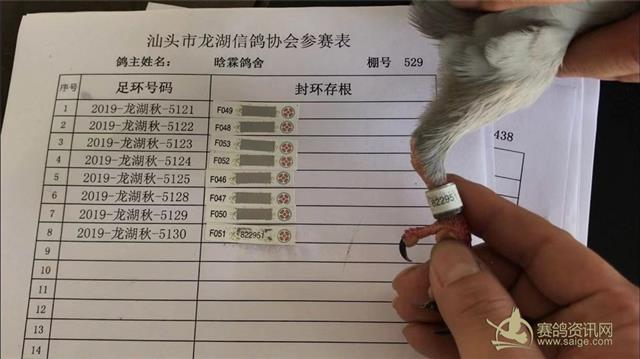 汕头市龙湖信鸽协会参赛表
鸽主姓名： 晗霖鸽舍 棚号 529
序号 足环号码 封环存根
1 2019-龙湖秋-5121 F049
2 2019-龙湖秋-5122 F048
3 2019-龙湖秋-5123 F053
4 2019-龙湖秋-5124 F052
5 2019-龙湖秋-5125 F046
6 2019-龙湖秋-5128 F047
7 2019-龙湖秋-5129 F050
8 2019-龙湖秋-5130 F051 822951
9
10
11
12
13
14
438
822951
赛鸽资讯网
www.saige.com